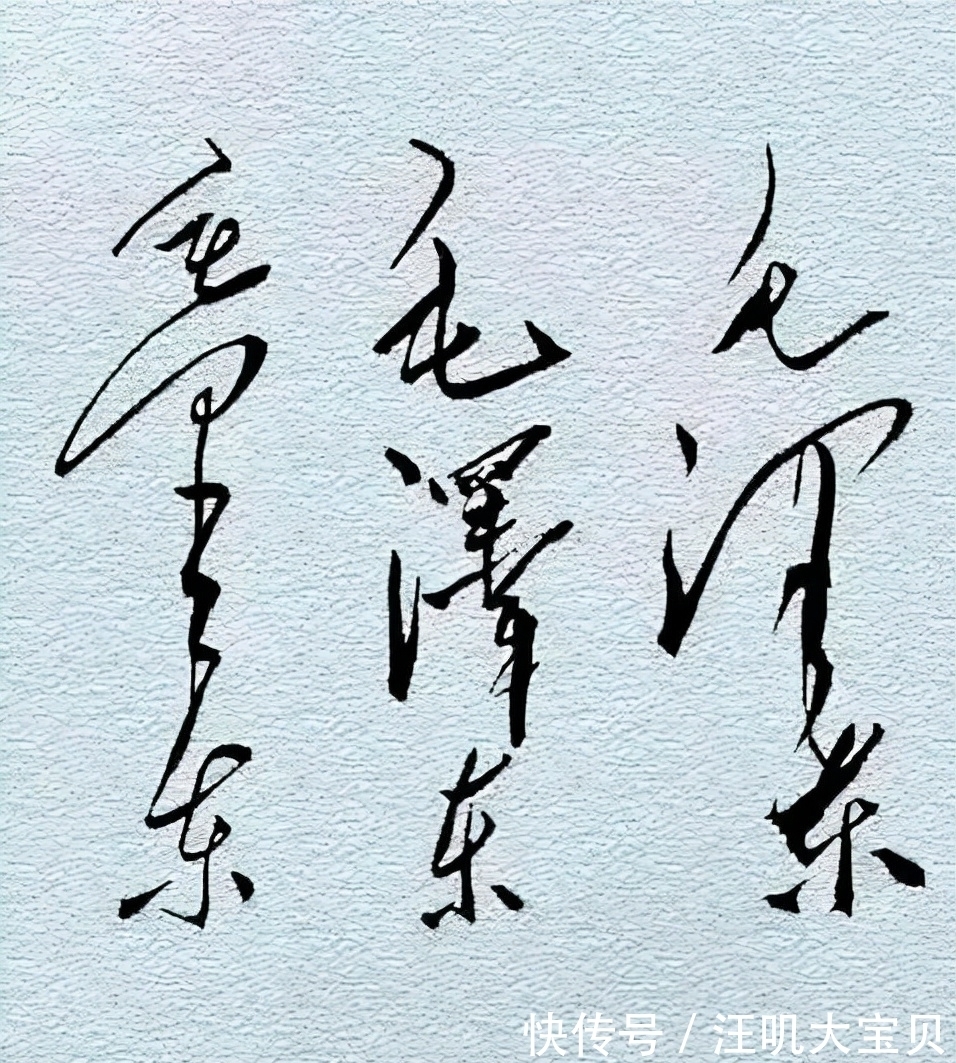 毛泽东
毛澤东
毛泽东
快传号/汪叽大宝贝